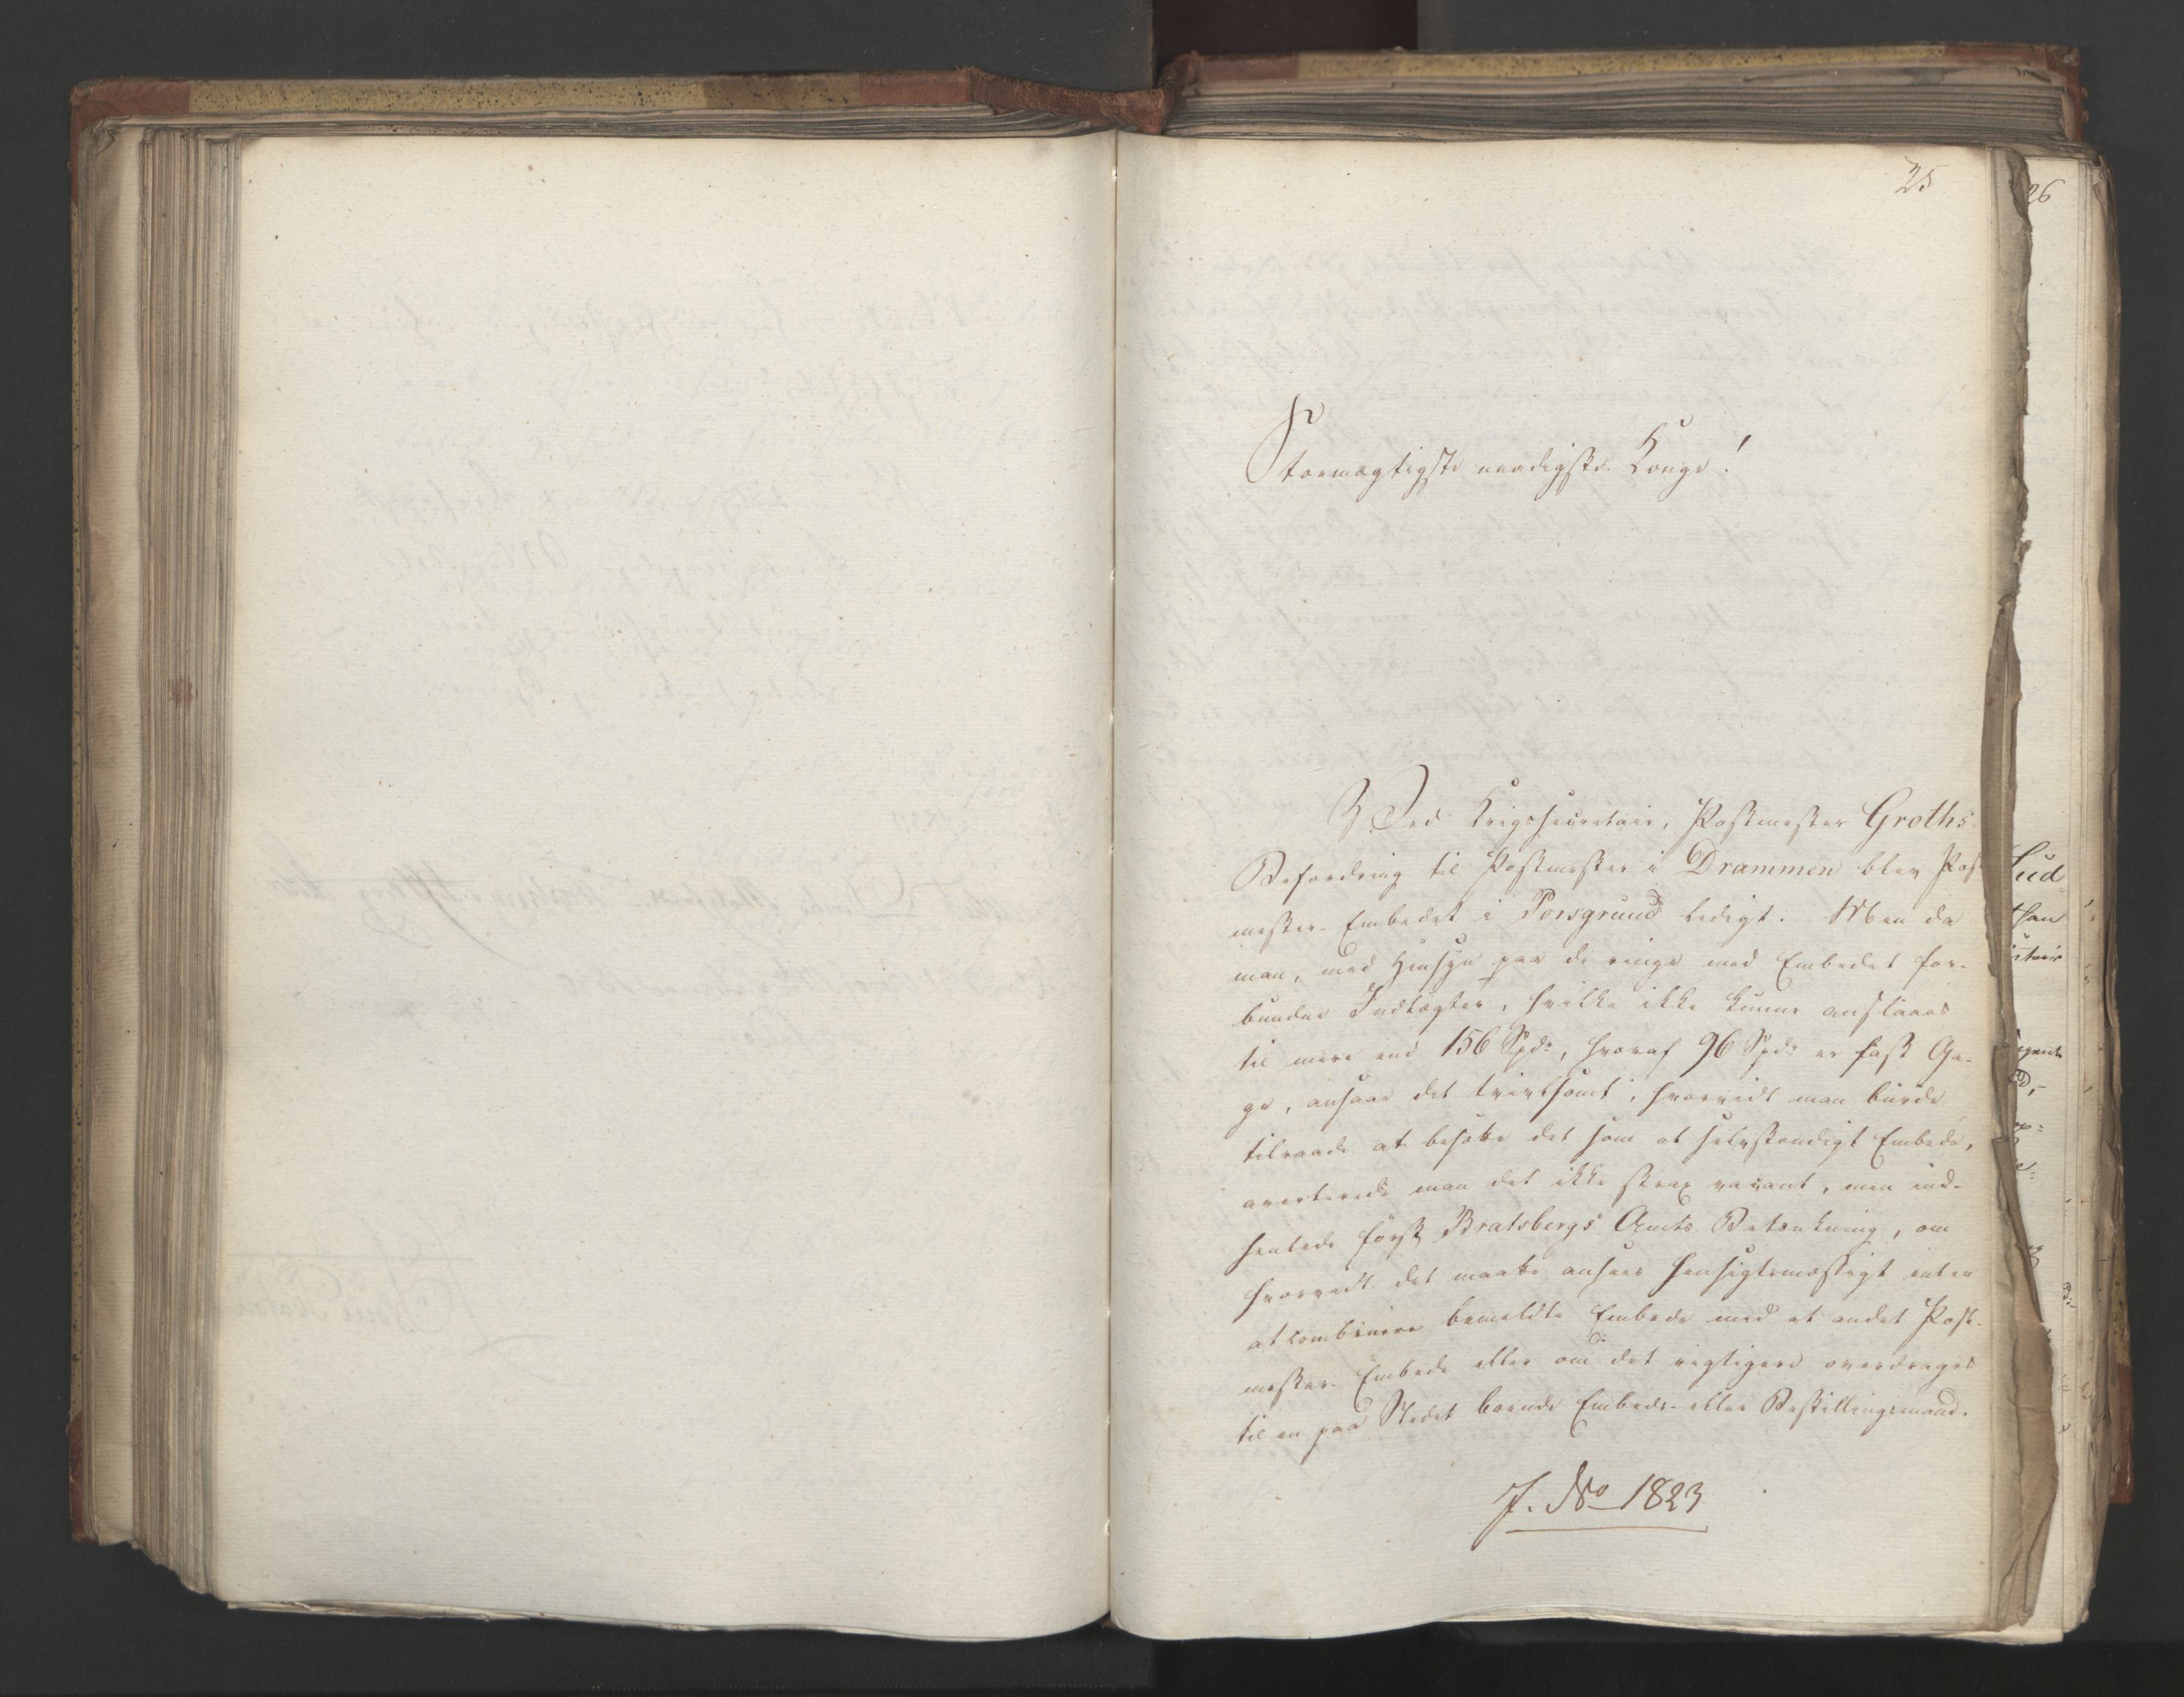 25
26
Stormægtigste naadigste Konge!
Ved Krigssecretair, Postmester Groths
Befordring til Postmester i Drammen blev Post-
mester-Embedet i Porsgrund ledigt. Men da
man, med Hensyn paa de ringe med Embedet for-
bundne Indtægter, hvilke ikke kunne anslaaes
til mere end 156 Spd:, hvoraf 96 Spd: er fast Ga-
ge, ansaae det tvivlsomt, hvorvidt man burde
tilraade at besætte det som et selvstændigt Embede,
averterede man det ikke strax vacant, men ind-
hentede først Bratsbergs Amts Betænkning, om
hvorvidt det maatte ansees hensigtsmæssigt enten
at combinere bemeldte Embede med et andet Post-
mester-Embede eller om det rigtigere overdrages
til en paa Stedet boende Embeds- eller Bestillingsmand.
J. No 1823